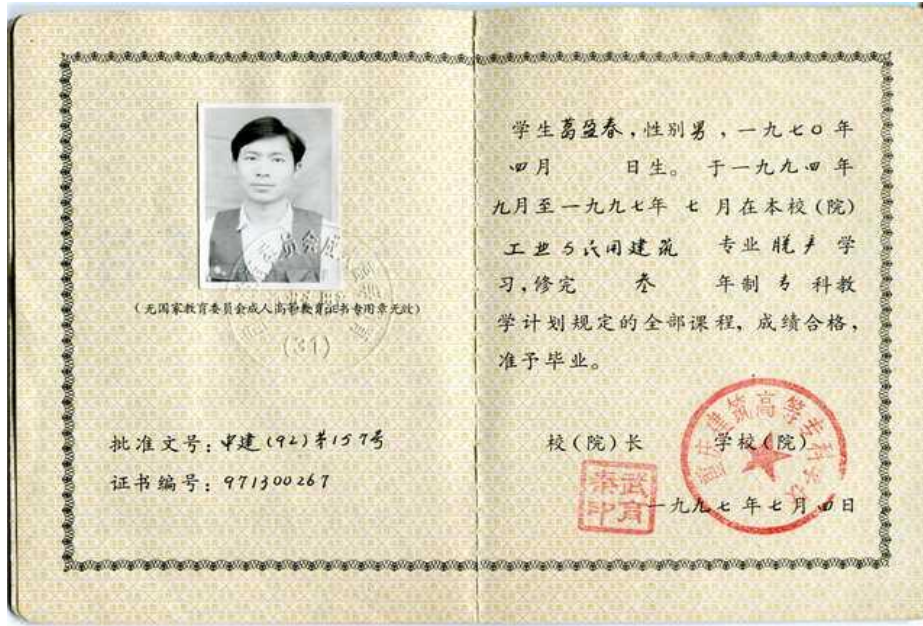 （无国家教育委员会成人高等教育证书专用章无效）
(31)
批准文号：申建(92)第157号
证书编号：971300267
学生葛盈春，性别男，一九七〇年
四月 日生。于一九九四年
九月至一九九七年 七 月在本校（院）
工业与民用建筑 专业脱产学
习，修完 叁 年制 专 科教
学计划规定的全部课程，成绩合格，
准予毕业。
校（院）长 学校（院）
建筑高等专科学校
武育秦印
一九九七年七月四日